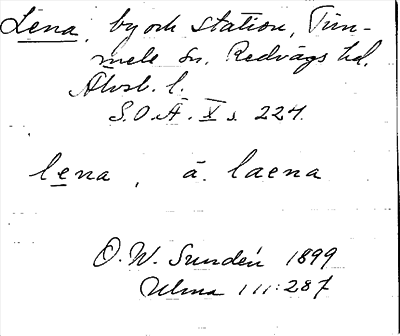 Lena, by och station, Tim-
mele sn. Redvägs hd.
Älvsb. l.
S.O.Ä. X s. 224.
lena, ä. laena
O. W. Sundén 1899
Ulma 111:287